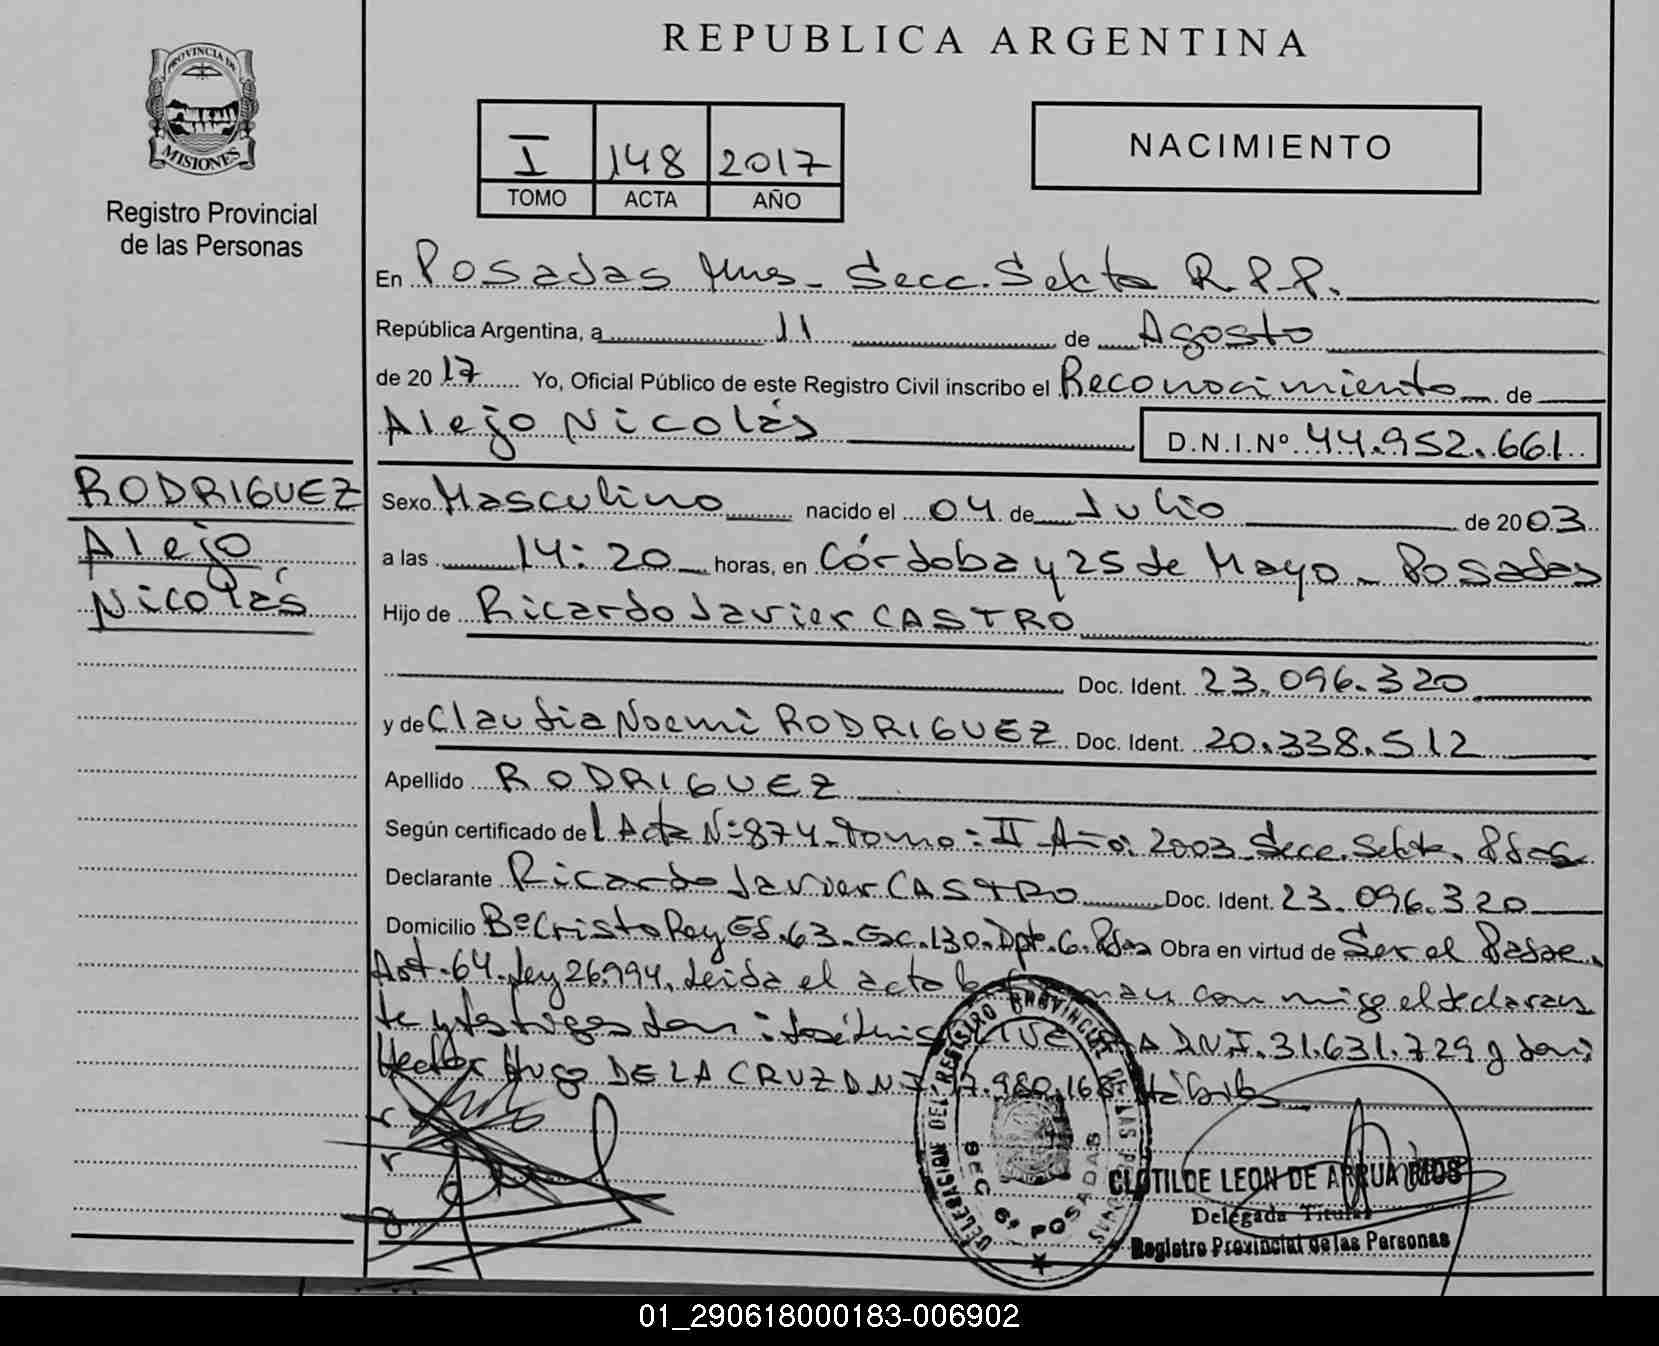 REPUBLICA ARGENTINA
PROVINCIA DE
MISIONES
Registro Provincial
de las Personas
I 148 2017
TOMO ACTA AÑO
NACIMIENTO
En Posadas Mnes - Secc. Sexta R.P.P.
República Argentina, a 11 de Agosto
de 20 17 Yo, Oficial Público de este Registro Civil inscribo el Reconocimiento de
Alejo Nicolás
D.N.I.Nº 44.952.661
RODRIGUEZ
Alejo
Nicolás
Sexo Masculino nacido el 04 de Julio de 20 03
a las 14:20 horas, en Córdoba y 25 de Mayo - Posadas
Hijo de Ricardo Javier CASTRO
Doc. Ident. 23.096.320
y de Claudia Noemi RODRIGUEZ Doc. Ident. 20.338.512
Apellido RODRIGUEZ
Según certificado de l Acta Nº 874 - Tomo: II Año: 2003 Secc. Sexta. Pdas
Declarante Ricardo Javier CASTRO Doc. Ident. 23.096.320
Domicilio Bº Cristo Rey Ed. 63 - Esc. 130 - Dpto. 6. Pdas Obra en virtud de Ser el Padre.
Art. 64. Ley 26.994. Leida el acta la firman con migo el declaran
te y testigos don: José Luis DNI. 31.631.729 y don:
Hector Hugo DE LA CRUZ D.N.I. 17.980.168
DELEGACION DEL REGISTRO PROVINCIAL DE LAS PERSONAS
SEC 6ª POSADAS
CLOTILDE LEON DE ARRUA RIOS
Delegada Titular
Registro Provincial de las Personas
01_290618000183-006902